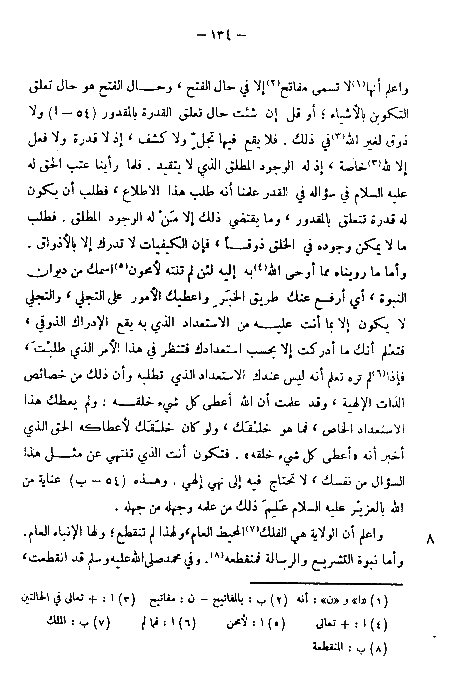 – ١٣٤ –
واعلم أنها(١)لا تسمى مفاتح(٢)إلا في حال الفتح ، وحـــال الفتح هو حال تعلق
التكوين بالأشياء ؛ أو قل إن شئت حال تعلق القدرة بالمقدور (٥٤ – ا) ولا
ذوق لغير الله(٣)في ذلك . فلا يقع فيها تجلٍّ ولا كشف ، إذ لا قدرة ولا فعل
إلا لله(٣)خاصة ، إذ له الوجود المطلق الذي لا يتقيد . فلما رأينا عتب الحق له
عليه السلام في سؤاله في القدر علمنا أنه طلب هذا الاطلاع ، فطلب أن يكون
له قدرة تتعلق بالمقدور ، وما يقتضي ذلك إلا مَنْ له الوجود المطلق . فطلب
ما لا يمكن وجوده في الخلق ذوقــاً ، فإن الكيفيات لا تدرك إلا بالأذواق .
وأما ما رويناه مما أوحى الله(٤)به إليه لئن لم تنته لأمحون(٥)اسمك من ديوان
النبوة ، أي أرفع عنك طريق الخَبَر وأعطيك الأمور على التجلي ، والتجلي
لا يكون إلا بما أنت عليــــه من الاستعداد الذي به يقع الإدراك الذوقي ،
فتعلم أنك ما أدركت إلا بحسب استعدادك فتنظر في هذا الأمر الذي طلبت ،
فإذا(٦)لم تره تعلم أنه ليس عندك الاستعداد الذي تطلبه وأن ذلك من خصائص
الذات الإلهية ، وقد علمت أن الله أعطى كل شيء خلقـــه ؛ ولم يعطك هذا
الاستعداد الخاص ، فما هو خلـْقك ، ولو كان خلـْقَك لأعطاكه الحق الذي
أخبر أنه «أعطى كل شيء خلقه» . فتكون أنت الذي تنتهي عن مثـــلى هذا
السؤال من نفسك ، لا تحتاج فيه إلى نهي إلهي . وهــذه (٥٤ – ب) عناية من
الله بالعزيْر عليه السلام عَلِمَ ذلك من علمه وجهله من جهله .
٨ واعلم أن الولاية هي الفلك(٧)المحيط العام ، ولهذا لم تنقطع ؛ ولها الإنباء العام .
وأما نبوة التشريـــع والرسالة فمنقطعة(٨). وفي محمد صلى الله عليه وسلم قد انقطعت ،
(١) «ا» و «ن» : أنه (٢) ب : بالمفاتيح – ن : مفاتيح (٣) ا : + تعالى في الحالتين
(٤) ا : + تعالى (٥) ا : لأمحن (٦) ا : فما لم (٧) ب : الملك
(٨) ب : المنقطعة